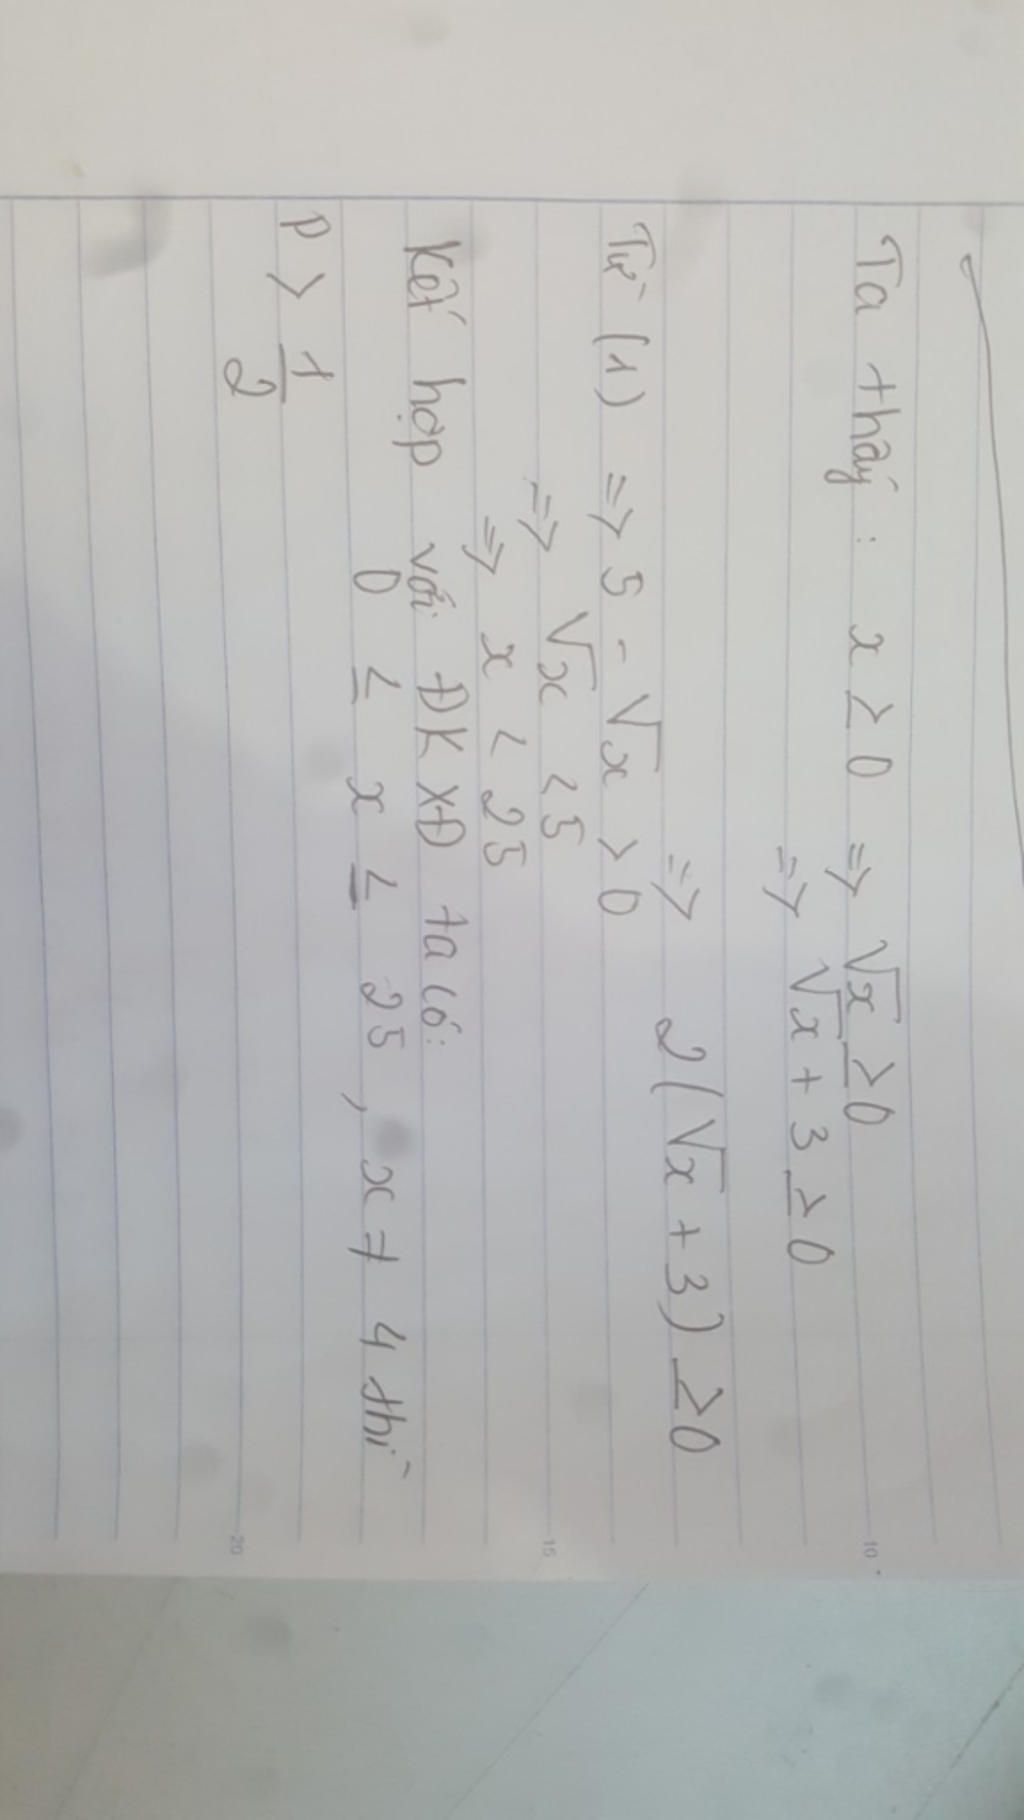 Ta thấy : x ≥ 0 => √x ≥ 0
=> √x + 3 ≥ 0
=> 2(√x + 3) ≥ 0
Từ (1) => 5 - √x > 0
=> √x < 5
=> x < 25
Kết hợp với ĐKXĐ ta có:
0 ≤ x ≤ 25 , x ≠ 4 thì
P > 1/2
10
15
20